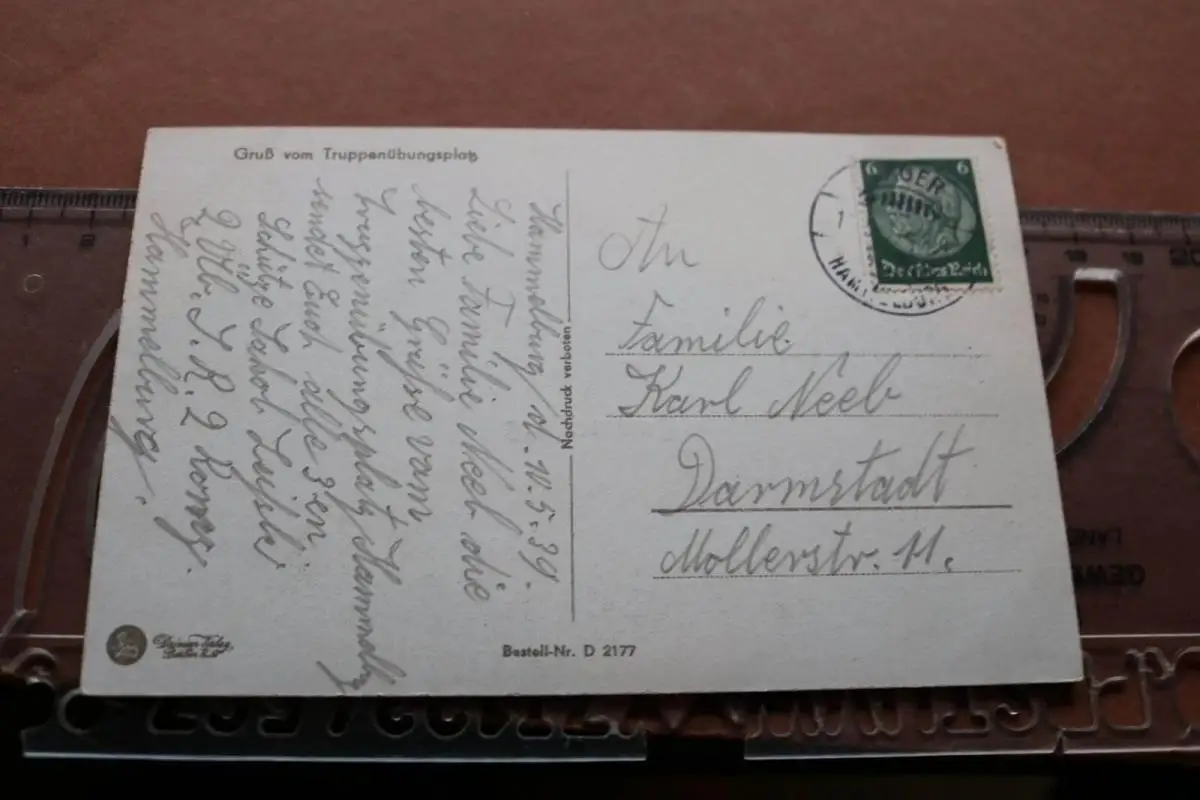 Gruß vom Truppenübungsplatz
Hammelburg, d. 10.5.39.
Liebe Familie Neeb die
besten Grüße vom
Truppenübungsplatz Hammelbg
sendet Euch alle 3 en.
Schütze Jakob
2 Üb. I.R. 2 Komp.
Hammelburg.
Nachdruck verboten
Bestell-Nr. D 2177
6 6
Deutsches Reich
LAGER
HAMMELBURG
An
Familie
Karl Neeb
Darmstadt
Mollerstr. 11.